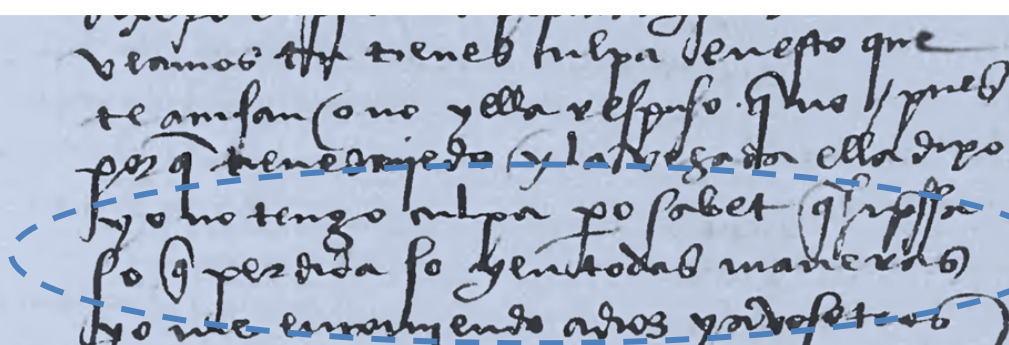 veamos tu tienes culpa en esto que
te acusan o no y ella respuso q̃ no / pues
por q̃ tienes miedo y la vegada ella dixo
yo no tengo culpa p̲o sabet q̃
so q̃ perdida so y en todas maneras
yo me encomiendo a dios y a vosotros